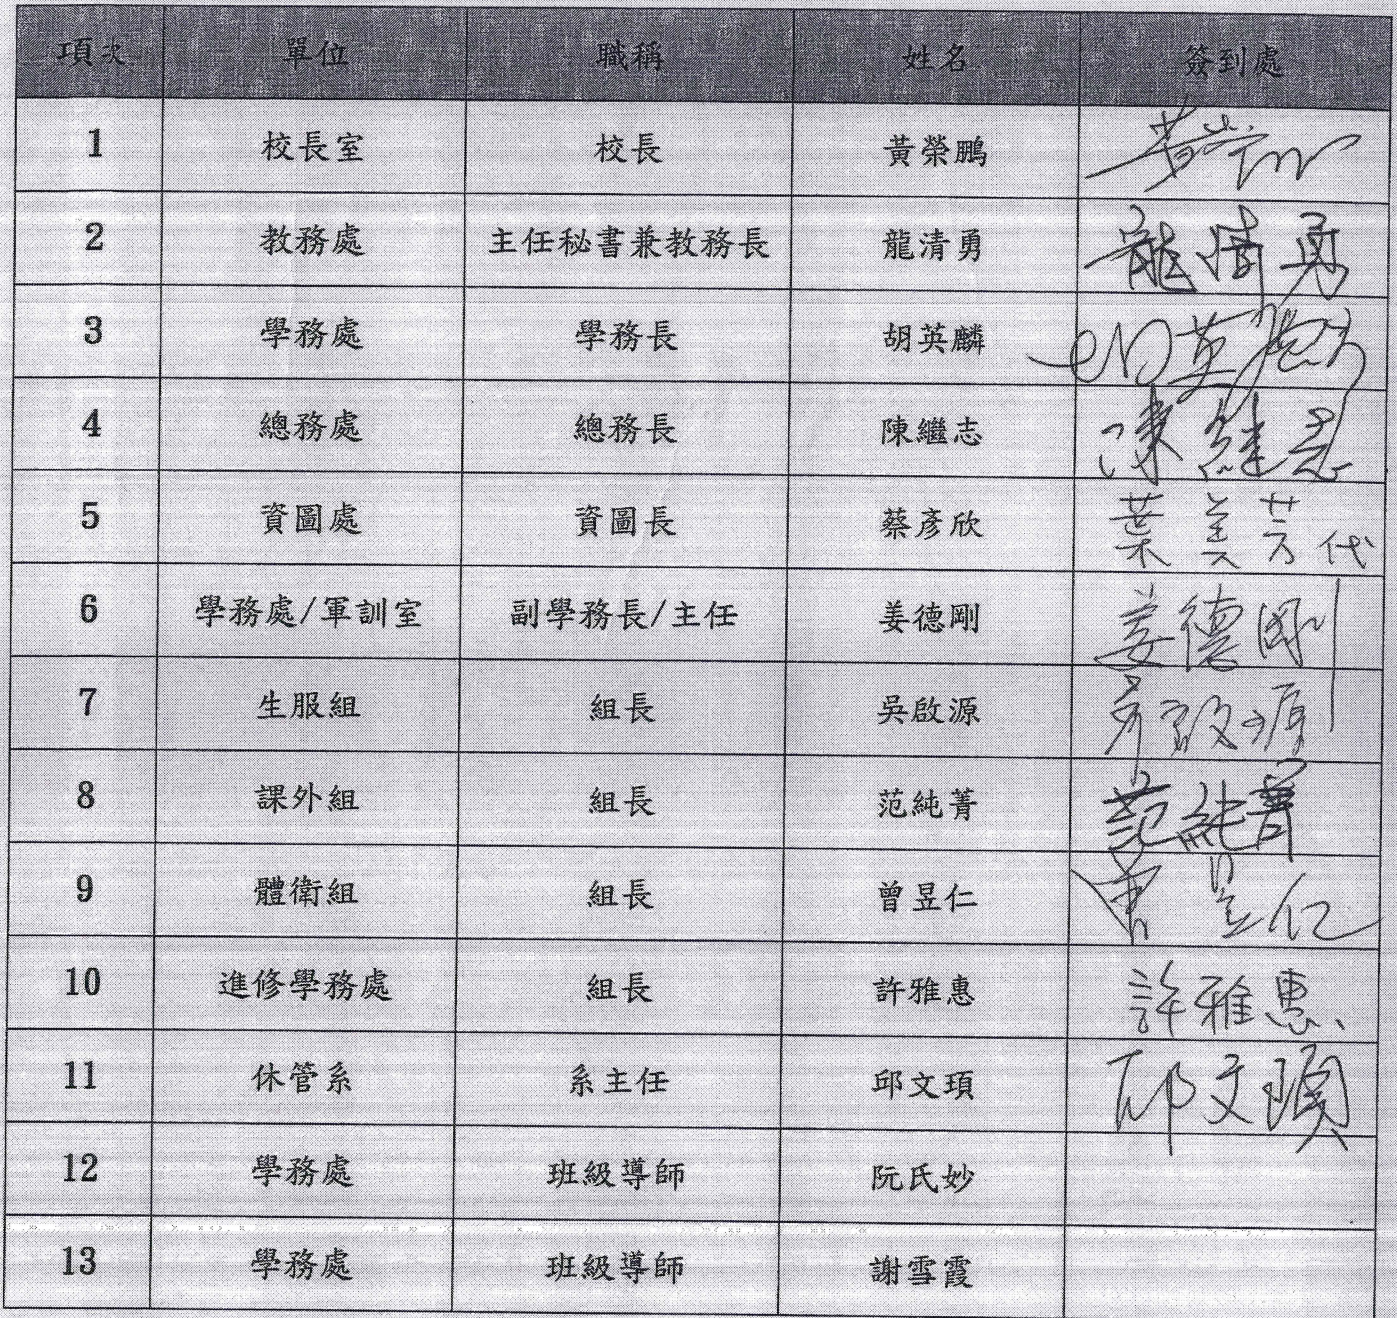 項次 單位 職稱 姓名 簽到處
1 校長室 校長 黃榮鵬
2 教務處 主任秘書兼教務長 龍清勇 龍清勇
3 學務處 學務長 胡英麟 胡英麟
4 總務處 總務長 陳繼志 陳繼志
5 資圖處 資圖長 蔡彥欣 葉美芳代
6 學務處/軍訓室 副學務長/主任 姜德剛 姜德剛
7 生服組 組長 吳啟源 吳啟源
8 課外組 組長 范純菁 范純菁
9 體衛組 組長 曾昱仁 曾昱仁
10 進修學務處 組長 許雅惠 許雅惠
11 休管系 系主任 邱文頊 邱文頊
12 學務處 班級導師 阮氏妙
13 學務處 班級導師 謝雪霞